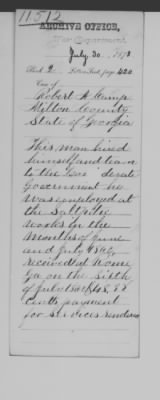 11512
ARCHIVE OFFICE,
War Department,
July 30 1873
Book 2 Letter Book, page 420
Case of
Robert H. Kemp
County
State of Georgia
This man hired
himself and team
to the Con derate
Government he
was employed at
the Saltpetre
Works in the
Months of June
and July 1862,
received at Rome
Ga on the Sixth
of July
cents payment
for services rendered